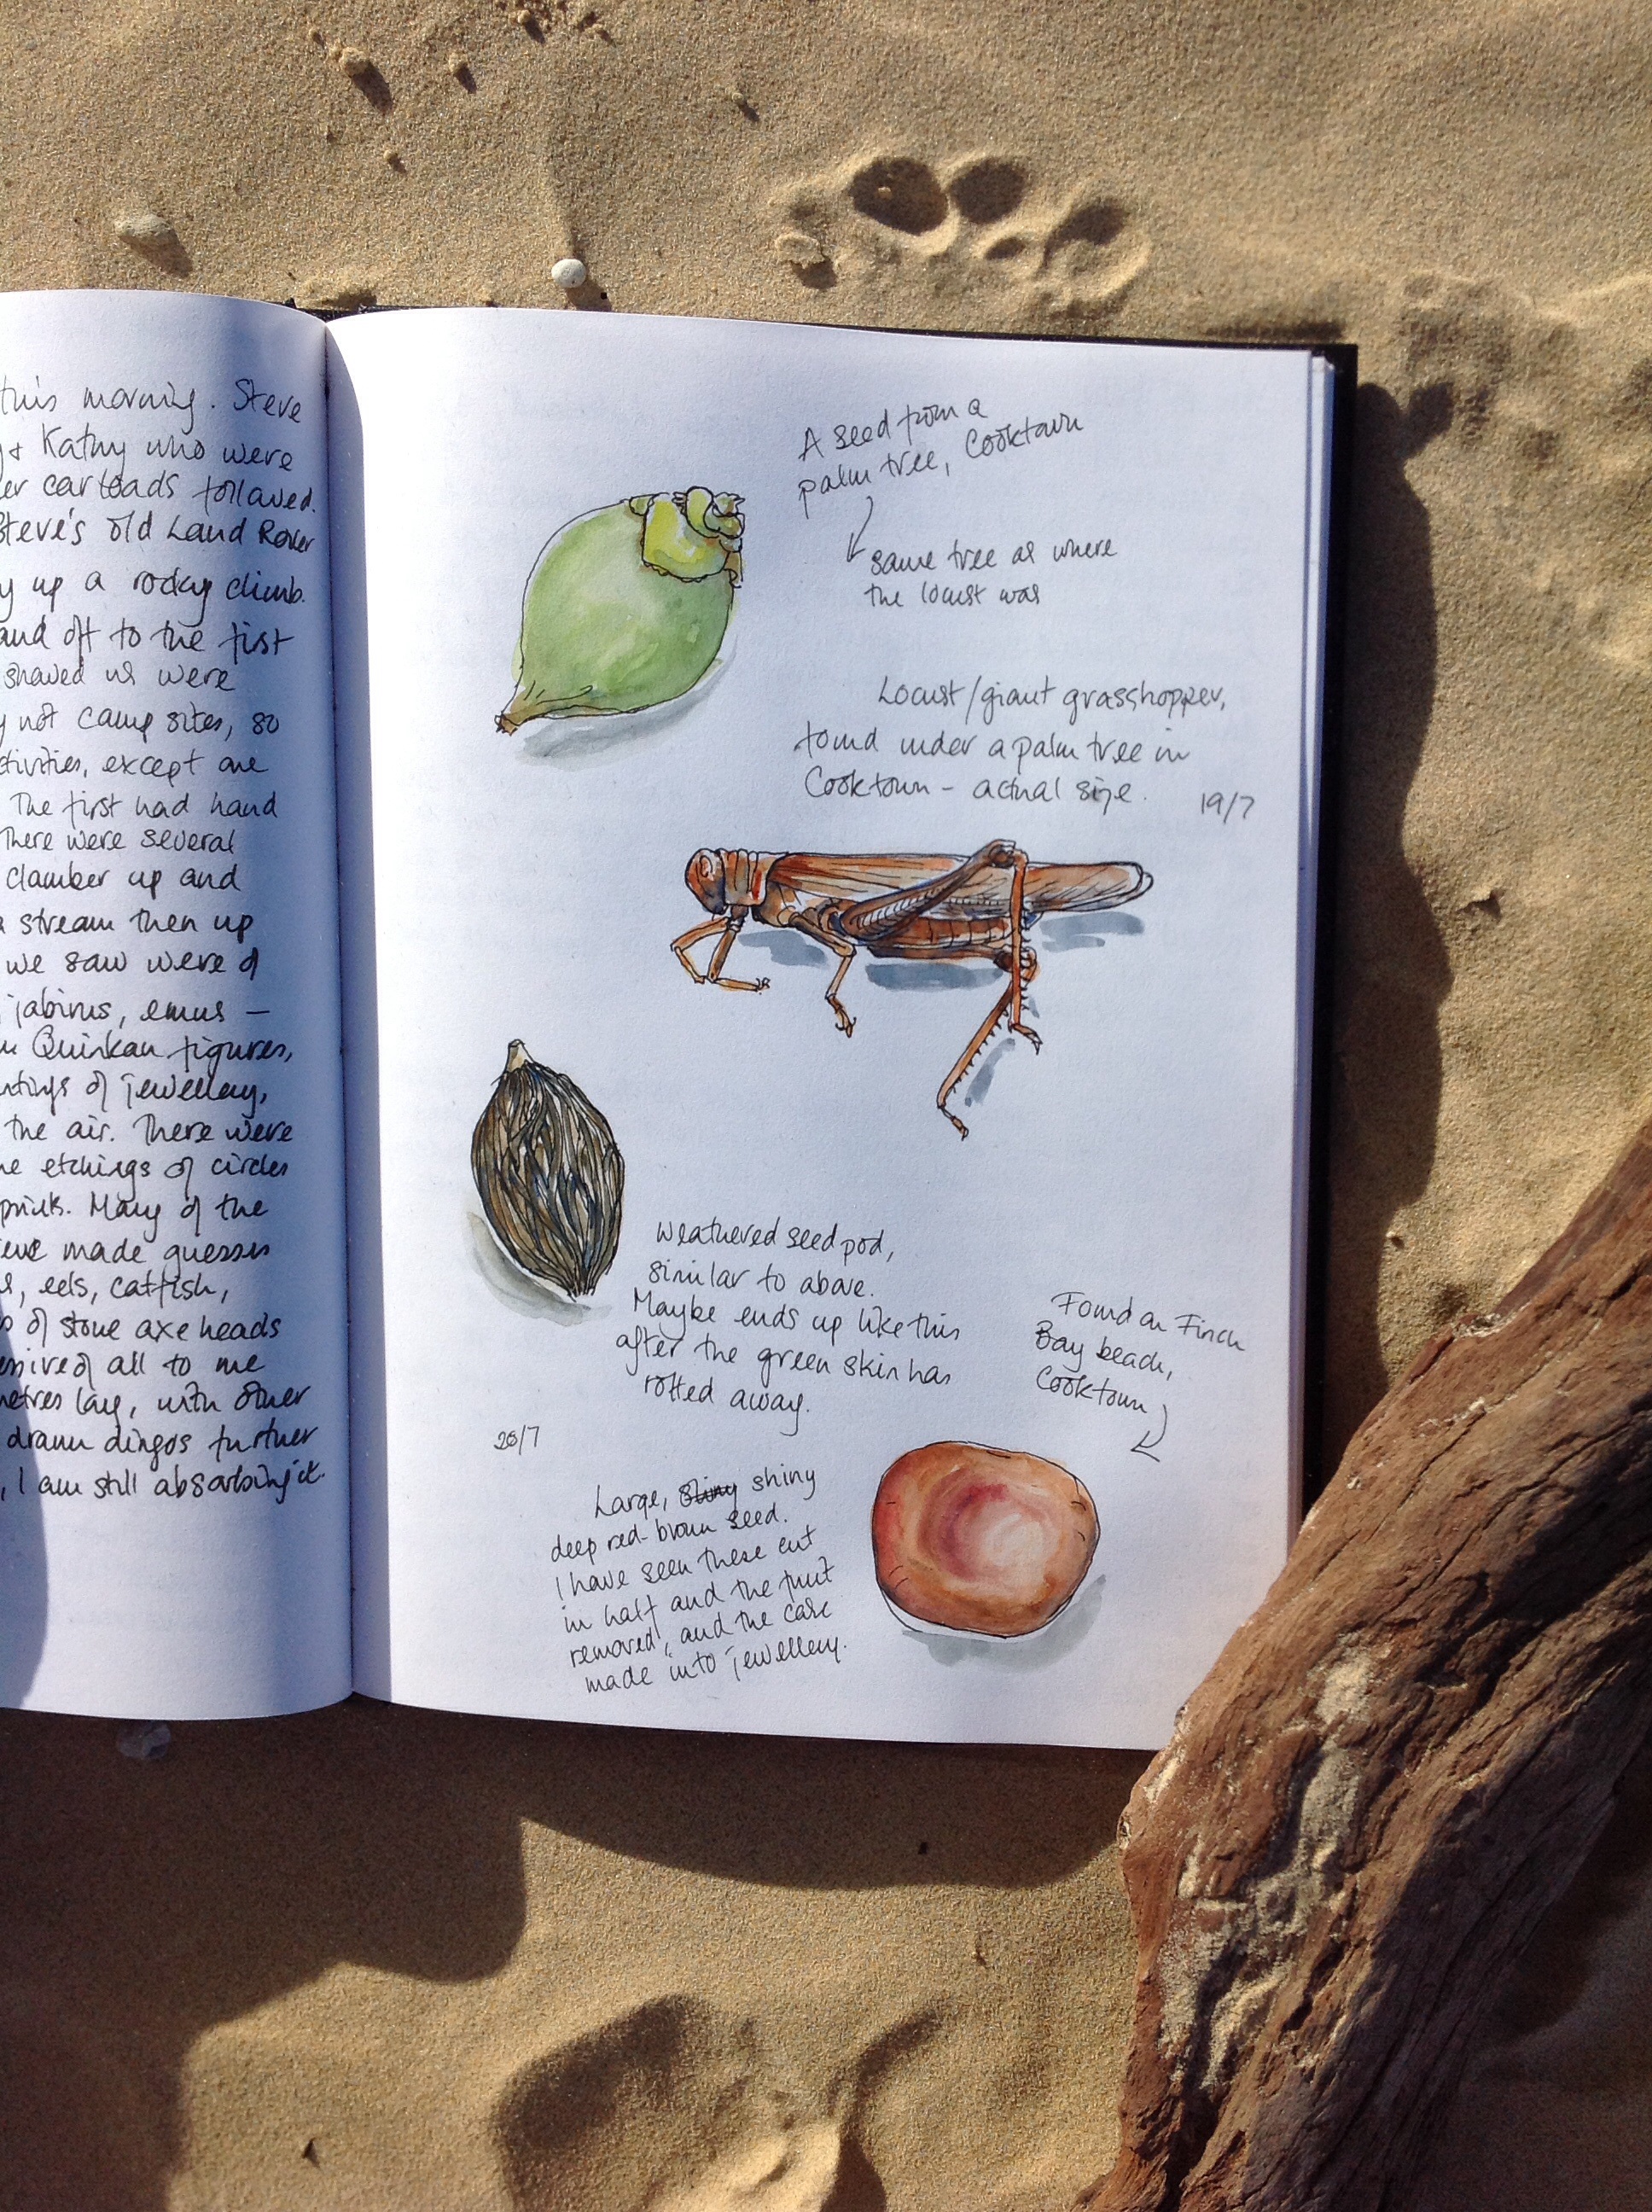 this morning. Steve
+ Kathy who were
er carloads followed.
Steve's old Land Rover
y up a rocky climb.
and off to the first
showed us were
y not camp sites, so
ctivities, except one
The first had hand
There were several
clamber up and
a stream then up
we saw were of
jabirus, emus –
Quinkan figures,
ntings of jewellery,
the air. There were
ne etchings of circles
prints. Many of the
eve made guesses
eels, catfish,
s of stone axe heads
essive of all to me
metres lay, with other
drawn dingos further
, I am still absorbing it.
A seed from a
palm tree, Cooktown
same tree as where
the locust was
Locust/giant grasshopper,
found under a palm tree in
Cooktown – actual size.
19/7
Weathered seed pod,
similar to above.
Maybe ends up like this
after the green skin has
rotted away.
20/7
Found on Finch
Bay beach,
Cooktown
Large, shiny shiny
deep red-brown seed.
I have seen these cut
in half and the fruit
removed, and the case
made into jewellery.